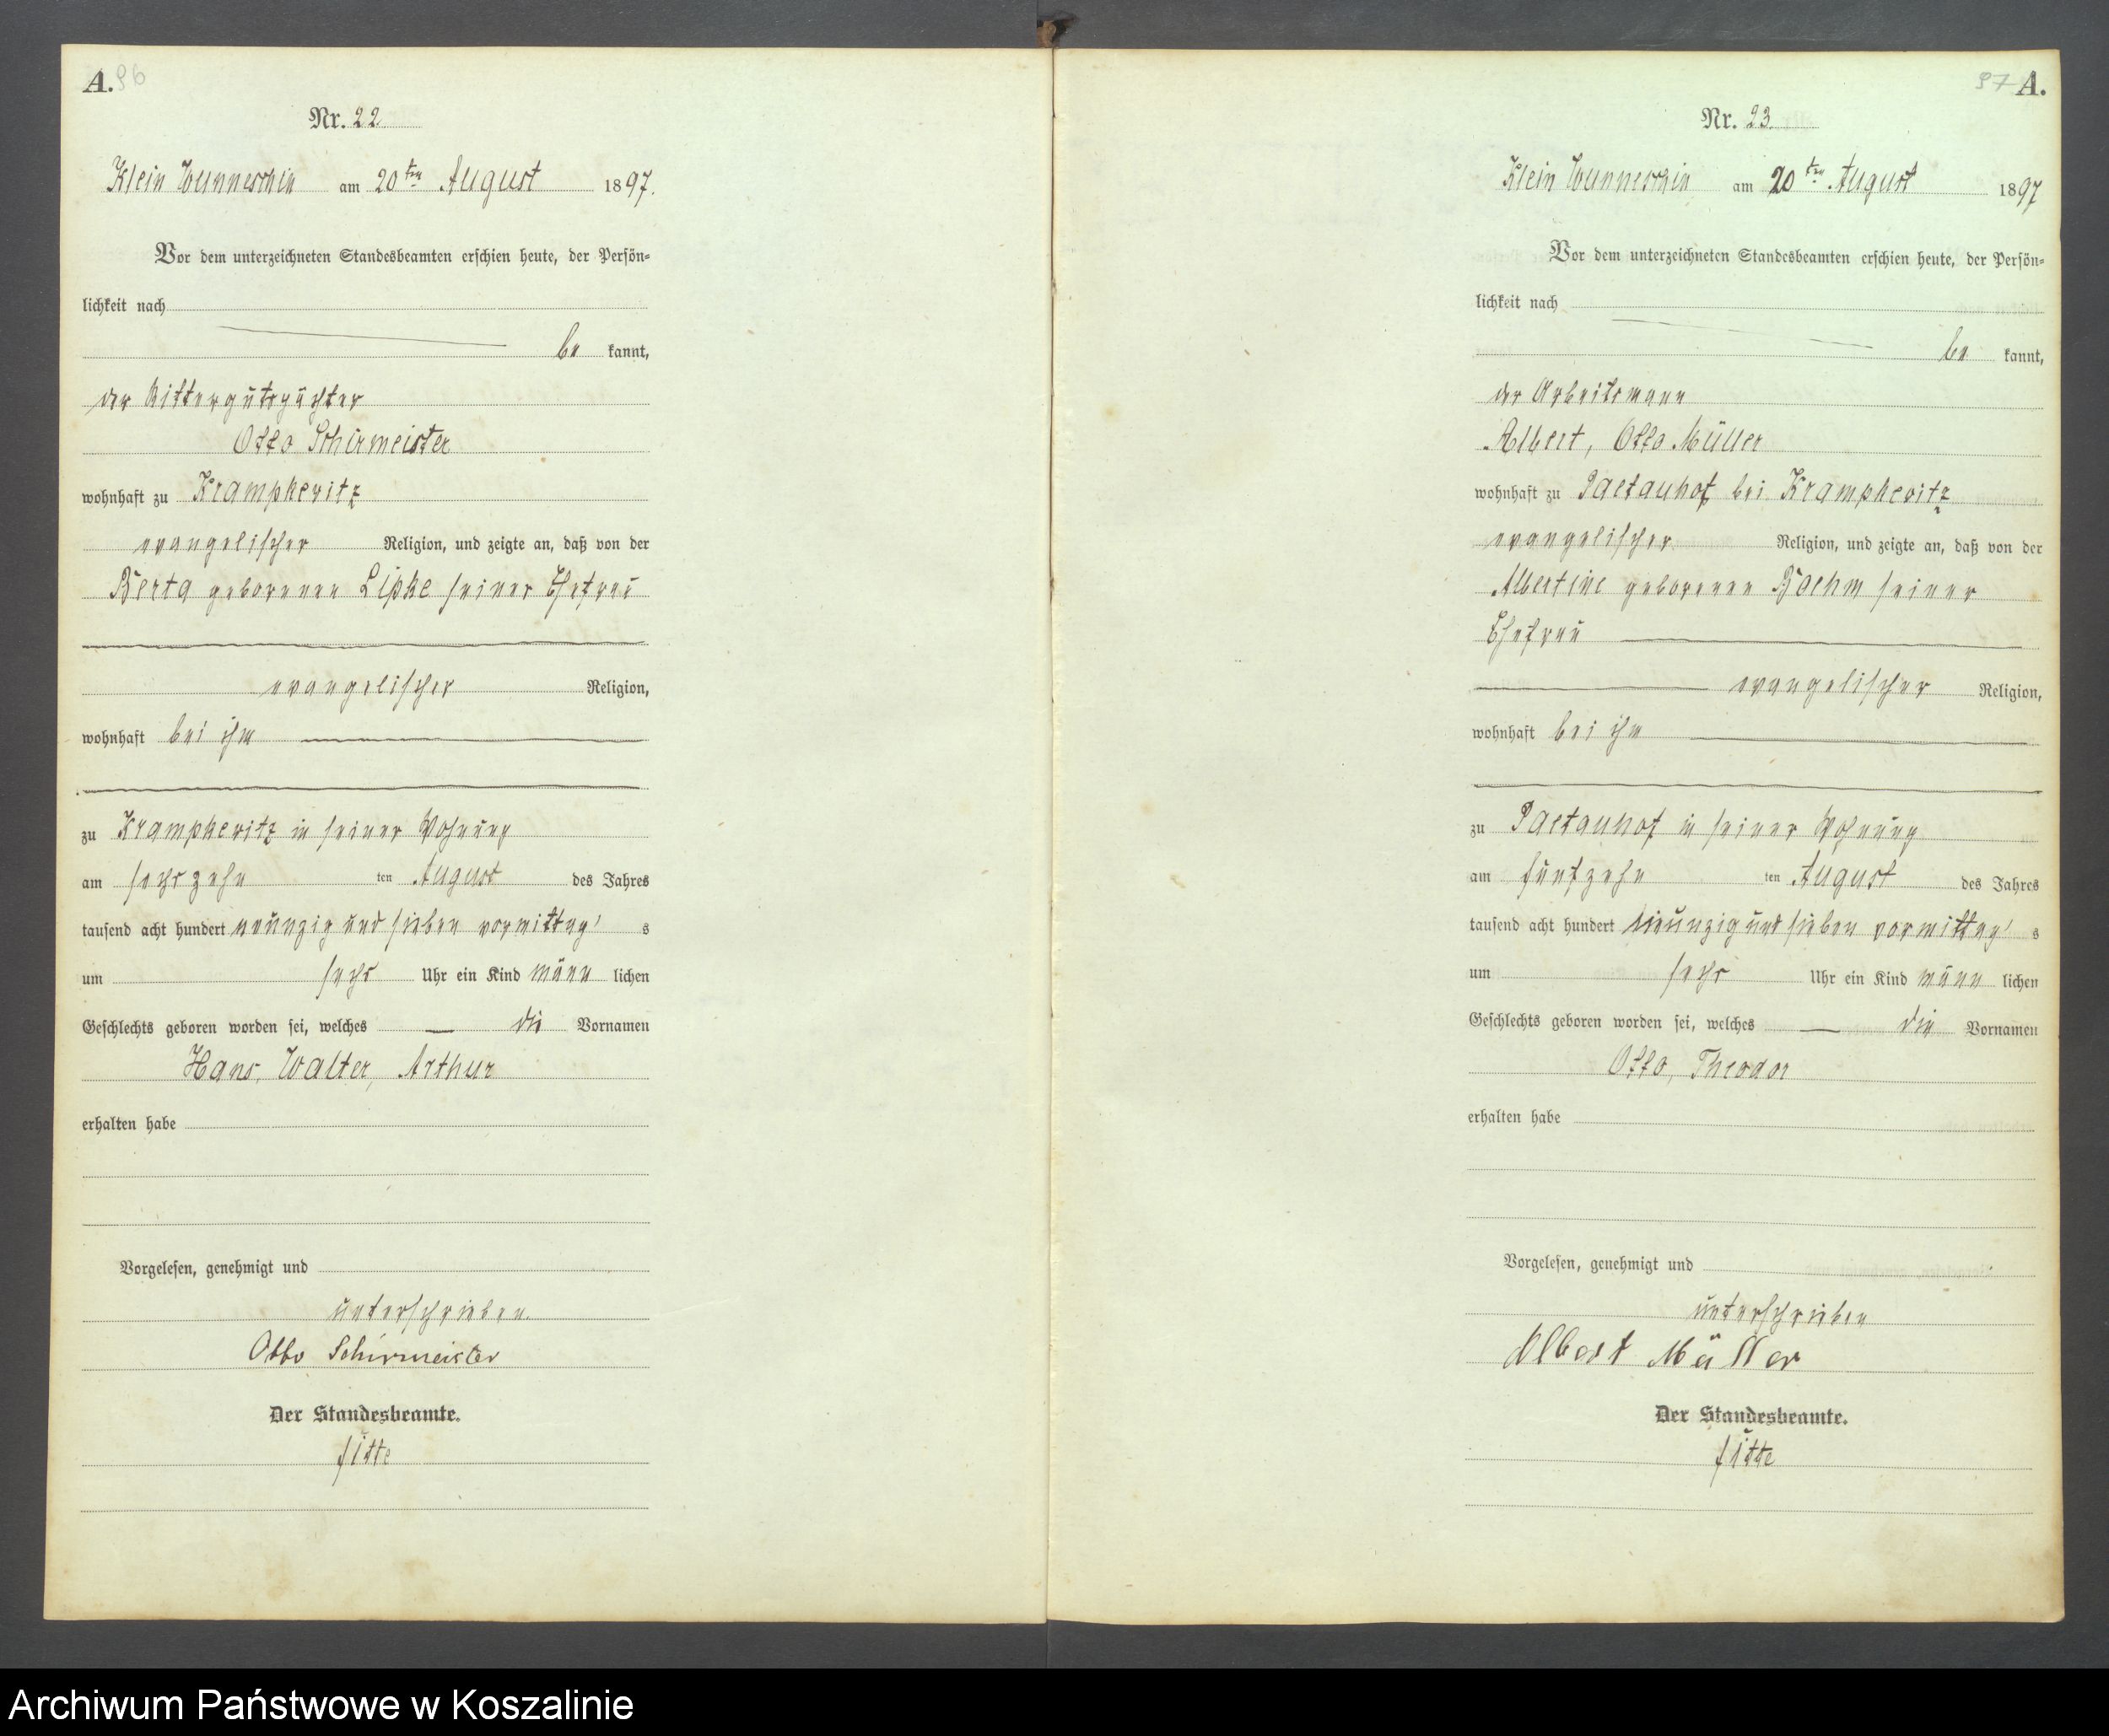 A. 96
Nr. 22
Klein Wunneschin am 20ten August 1897.
Vor dem unterzeichneten Standesbeamten erschien heute, der Persön-
lichkeit nach
be kannt,
der Rittergutspächter
Otto Schirmeister
wohnhaft zu Krampkewitz
evangelischer Religion, und zeigte an, daß von der
Berta geborenen Lipke seiner Ehefrau
evangelischer Religion,
wohnhaft bei ihm
zu Krampkewitz in seiner Wohnung
am sechszehn ten August des Jahres
tausend acht hundert neunzig und sieben vormittag s
um sechs Uhr ein Kind männ lichen
Geschlechts geboren worden sei, welches — die Vornamen
Hans, Walter, Arthur
erhalten habe
Vorgelesen, genehmigt und
unterschrieben.
Otto Schirmeister
Der Standesbeamte.
97 A.
Nr. 23.
Klein Wunneschin am 20ten August 1897
Vor dem unterzeichneten Standesbeamten erschien heute, der Persön-
lichkeit nach
be kannt,
der Arbeitsmann
Albert, Otto Müller
wohnhaft zu Paetauhof bei Krampkewitz
evangelischer Religion, und zeigte an, daß von der
Albertine geborenen Boehm seiner
Ehefrau
evangelischer Religion,
wohnhaft bei ihm
zu Paetauhof in seiner Wohnung
am fünfzehn ten August des Jahres
tausend acht hundert neunzig und sieben vormittag s
um sechs Uhr ein Kind männ lichen
Geschlechts geboren worden sei, welches — die Vornamen
Otto, Theodor
erhalten habe
Vorgelesen, genehmigt und
unterschrieben
Albert Müller
Der Standesbeamte.
Archiwum Państwowe w Koszalinie